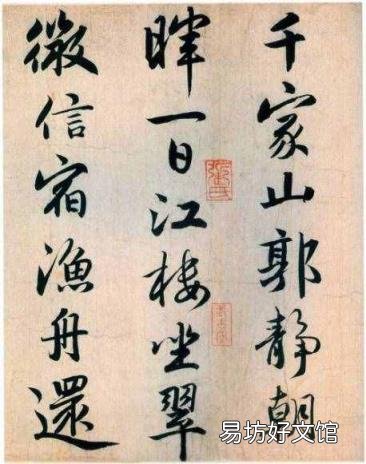 千家山郭靜朝
暉一日江樓坐翠
微信宿漁舟還
易坊好文馆